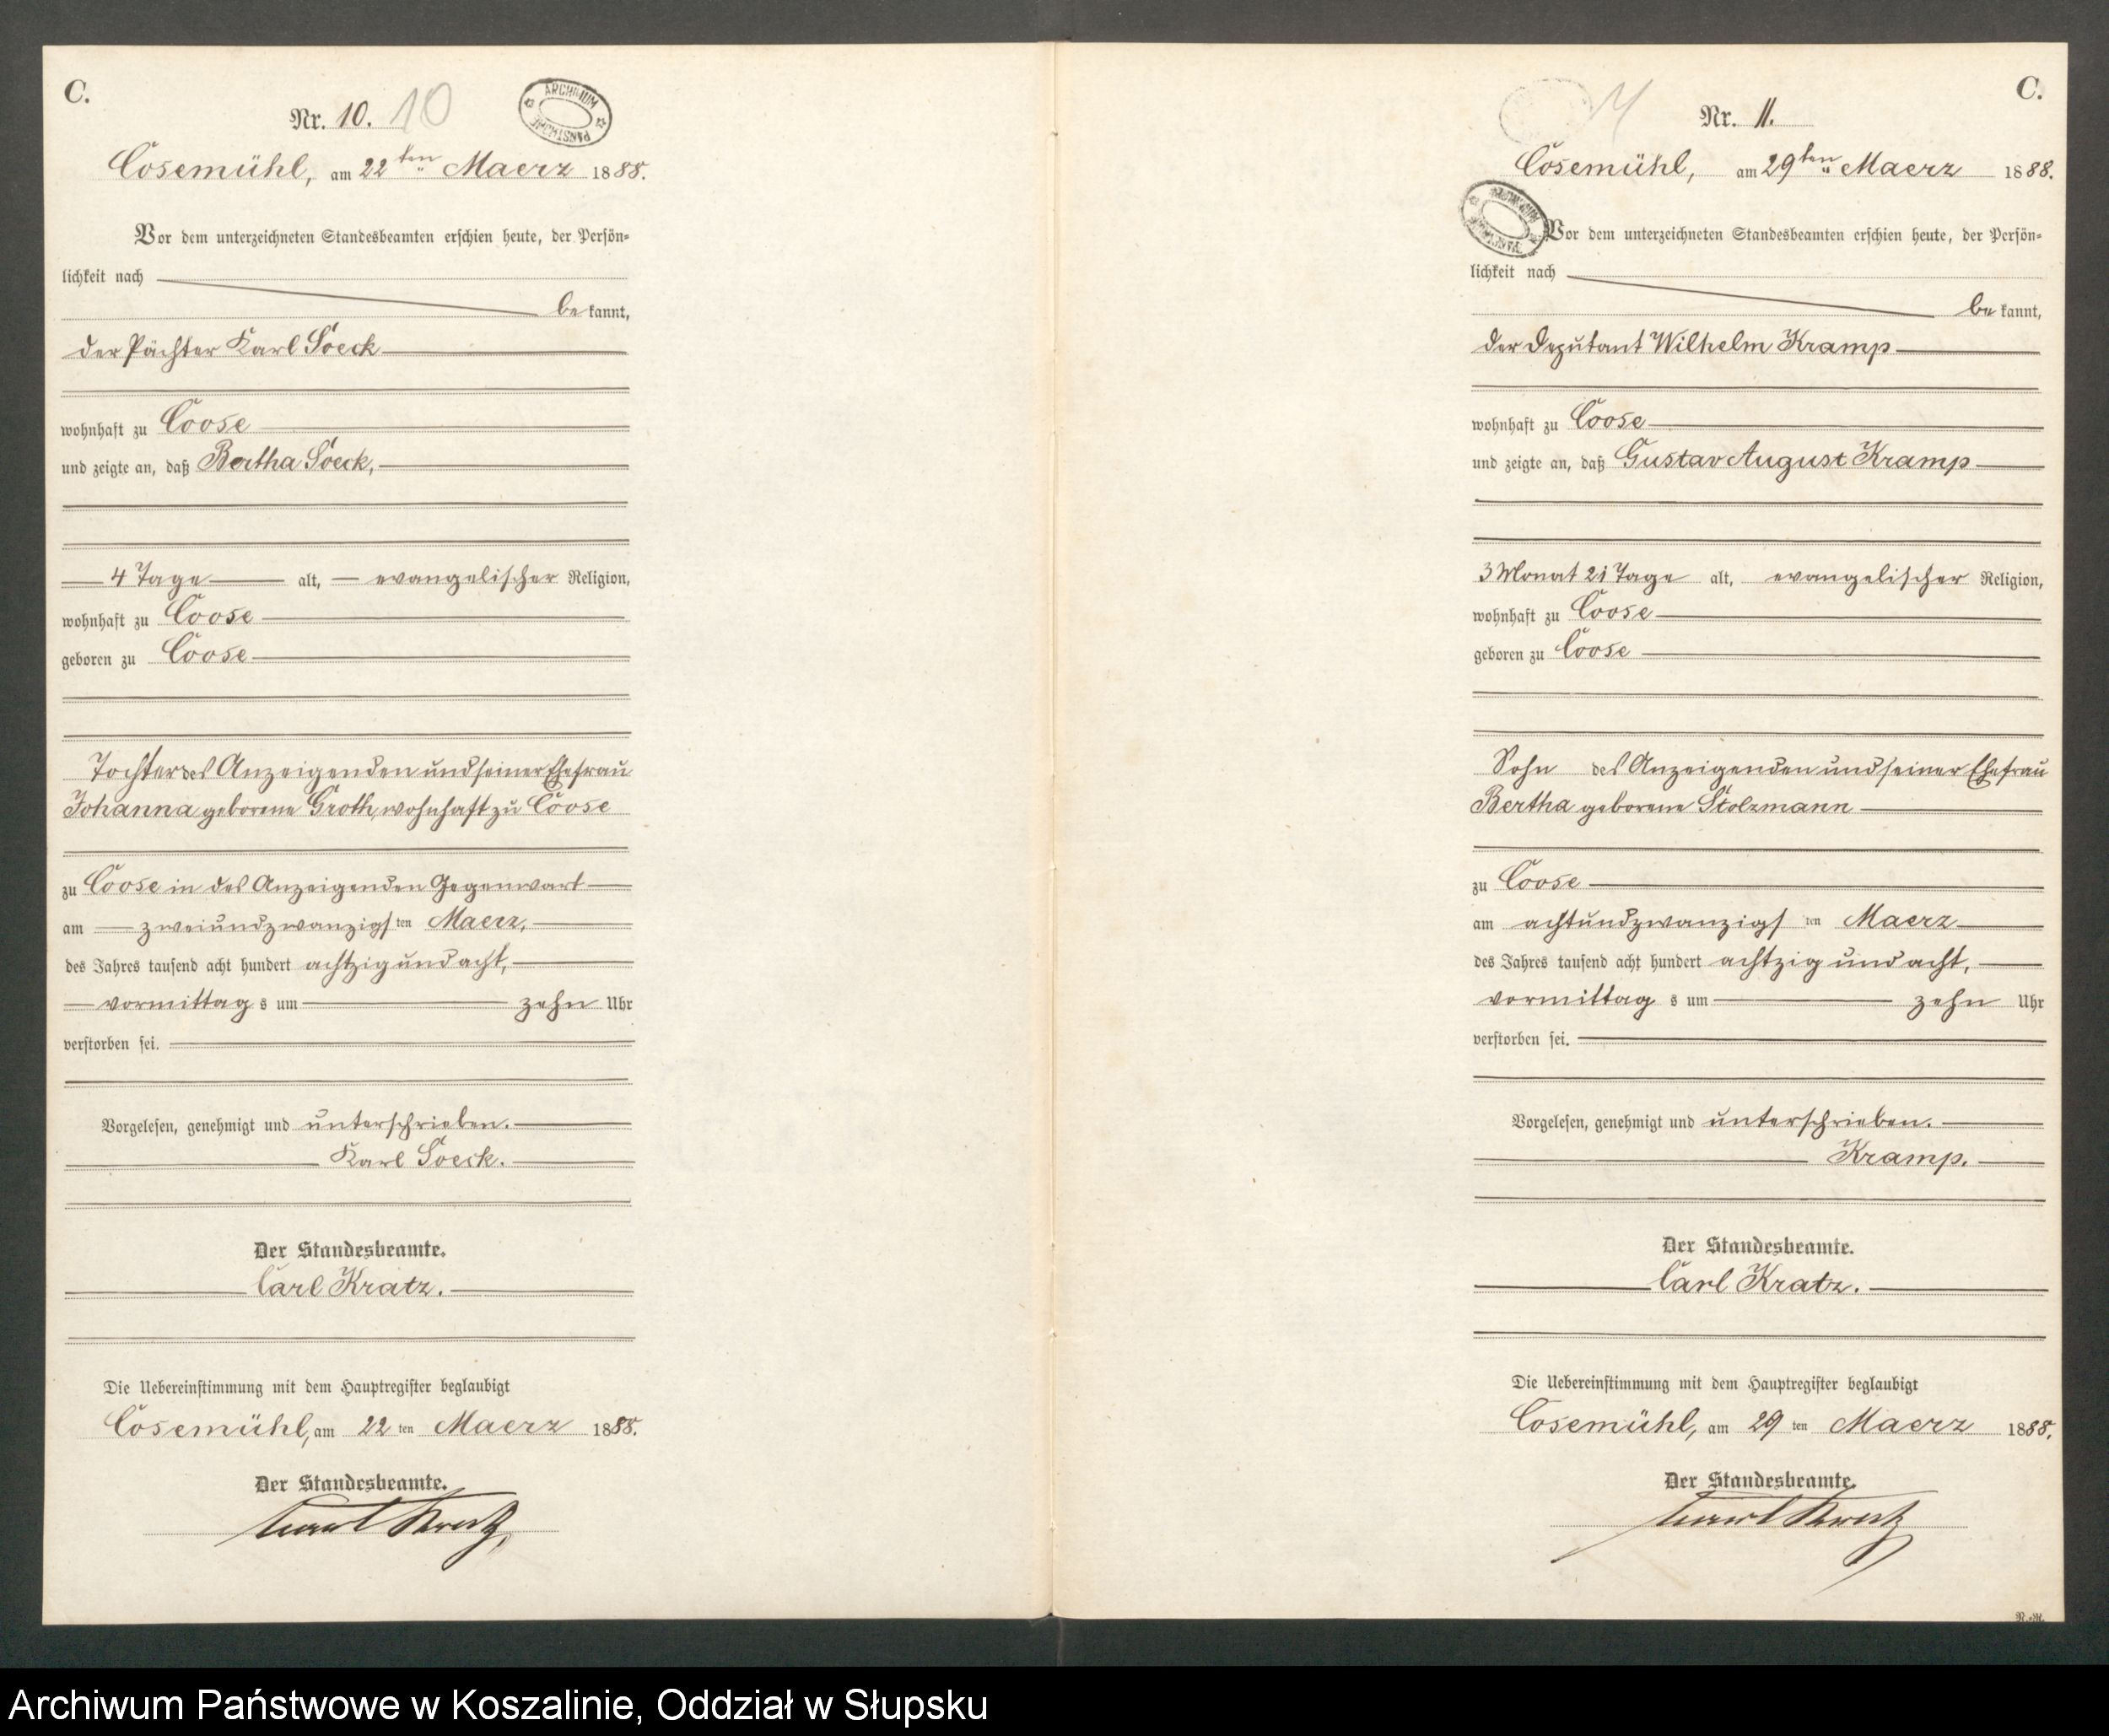 C.
Nr. 10. 10
ARCHIWUM PAŃSTWOWE
Cosemühl, am 22ten Maerz 1888.
Vor dem unterzeichneten Standesbeamten erschien heute, der Persön-
lichkeit nach
be kannt,
der Pächter Karl Soeck
wohnhaft zu Coose
und zeigte an, daß Bertha Soeck,
4 Tage alt, evangelischer Religion,
wohnhaft zu Coose
geboren zu Coose
Tochter des Anzeigenden und seiner Ehefrau
Johanna geborene Groth, wohnhaft zu Coose
zu Coose in des Anzeigenden Gegenwart
am zweiundzwanzigsten Maerz,
des Jahres tausend acht hundert achtzig und acht,
vormittags um zehn Uhr
verstorben sei.
Vorgelesen, genehmigt und unterschrieben.
Karl Soeck.
Der Standesbeamte.
Carl Kratz.
Die Uebereinstimmung mit dem Hauptregister beglaubigt
Cosemühl, am 22 ten Maerz 1888.
Der Standesbeamte.
Carl Kratz
C.
Nr. 11.
Cosemühl, am 29ten Maerz 1888.
Vor dem unterzeichneten Standesbeamten erschien heute, der Persön-
lichkeit nach
be kannt,
der Deputant Wilhelm Kramp
wohnhaft zu Coose
und zeigte an, daß Gustav August Kramp
3 Monat 21 Tage alt, evangelischer Religion,
wohnhaft zu Coose
geboren zu Coose
Sohn des Anzeigenden und seiner Ehefrau
Bertha geborene Stolzmann
zu Coose
am achtundzwanzigsten Maerz
des Jahres tausend acht hundert achtzig und acht,
vormittags um zehn Uhr
verstorben sei.
Vorgelesen, genehmigt und unterschrieben.
Kramp.
Der Standesbeamte.
Carl Kratz.
Die Uebereinstimmung mit dem Hauptregister beglaubigt
Cosemühl, am 29 ten Maerz 1888.
Der Standesbeamte.
Carl Kratz
Archiwum Państwowe w Koszalinie, Oddział w Słupsku